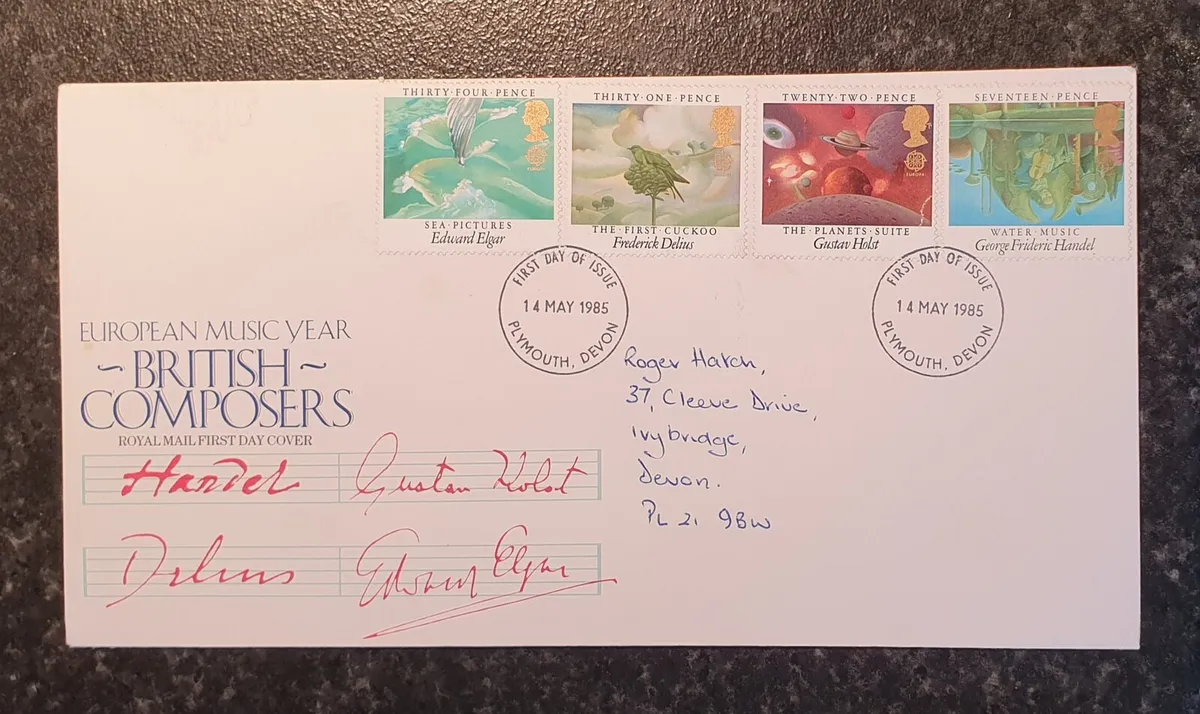 THIRTY·FOUR·PENCE
EUROPA
SEA·PICTURES
Edward Elgar
THIRTY·ONE·PENCE
EUROPA
THE·FIRST·CUCKOO
Frederick Delius
TWENTY·TWO·PENCE
EUROPA
THE·PLANETS·SUITE
Gustav Holst
SEVENTEEN·PENCE
WATER·MUSIC
George Frideric Handel
FIRST DAY OF ISSUE
14 MAY 1985
PLYMOUTH, DEVON
FIRST DAY OF ISSUE
14 MAY 1985
PLYMOUTH, DEVON
EUROPEAN MUSIC YEAR
~BRITISH~
COMPOSERS
ROYAL MAIL FIRST DAY COVER
Handel
Gustav Holst
Delius
Edward Elgar
Roger Hatch,
37, Cleeve Drive,
Ivybridge,
Devon.
PL 21 9BW